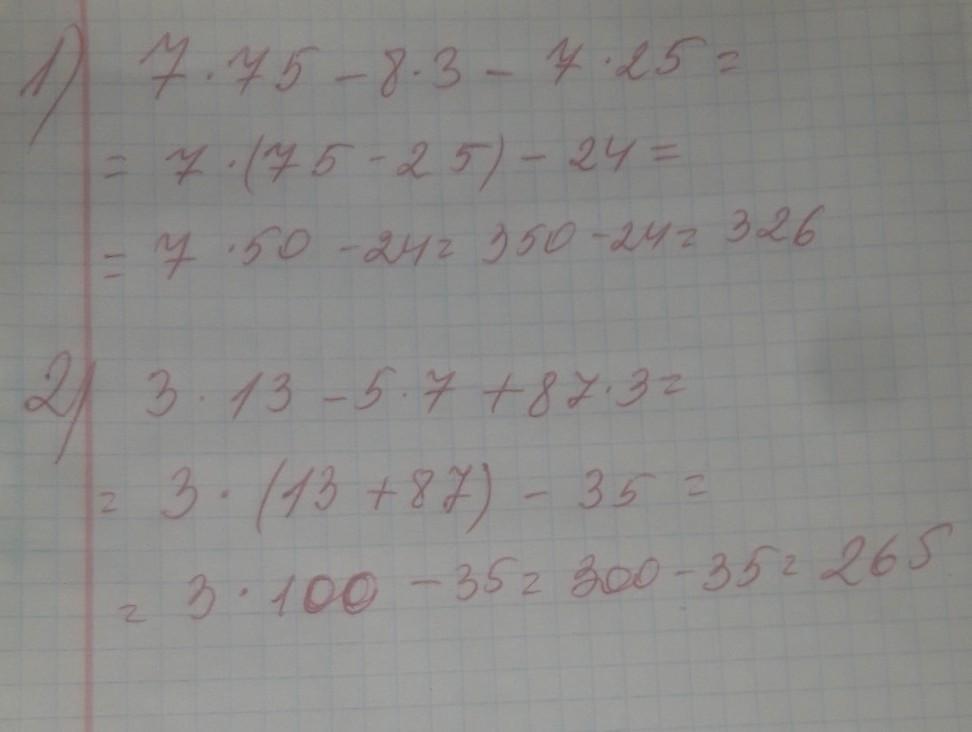 1) 7·75-8·3-7·25=
=7·(75-25)-24=
=7·50-24=350-24=326
2) 3·13-5·7+87·3=
=3·(13+87)-35=
=3·100-35=300-35=265